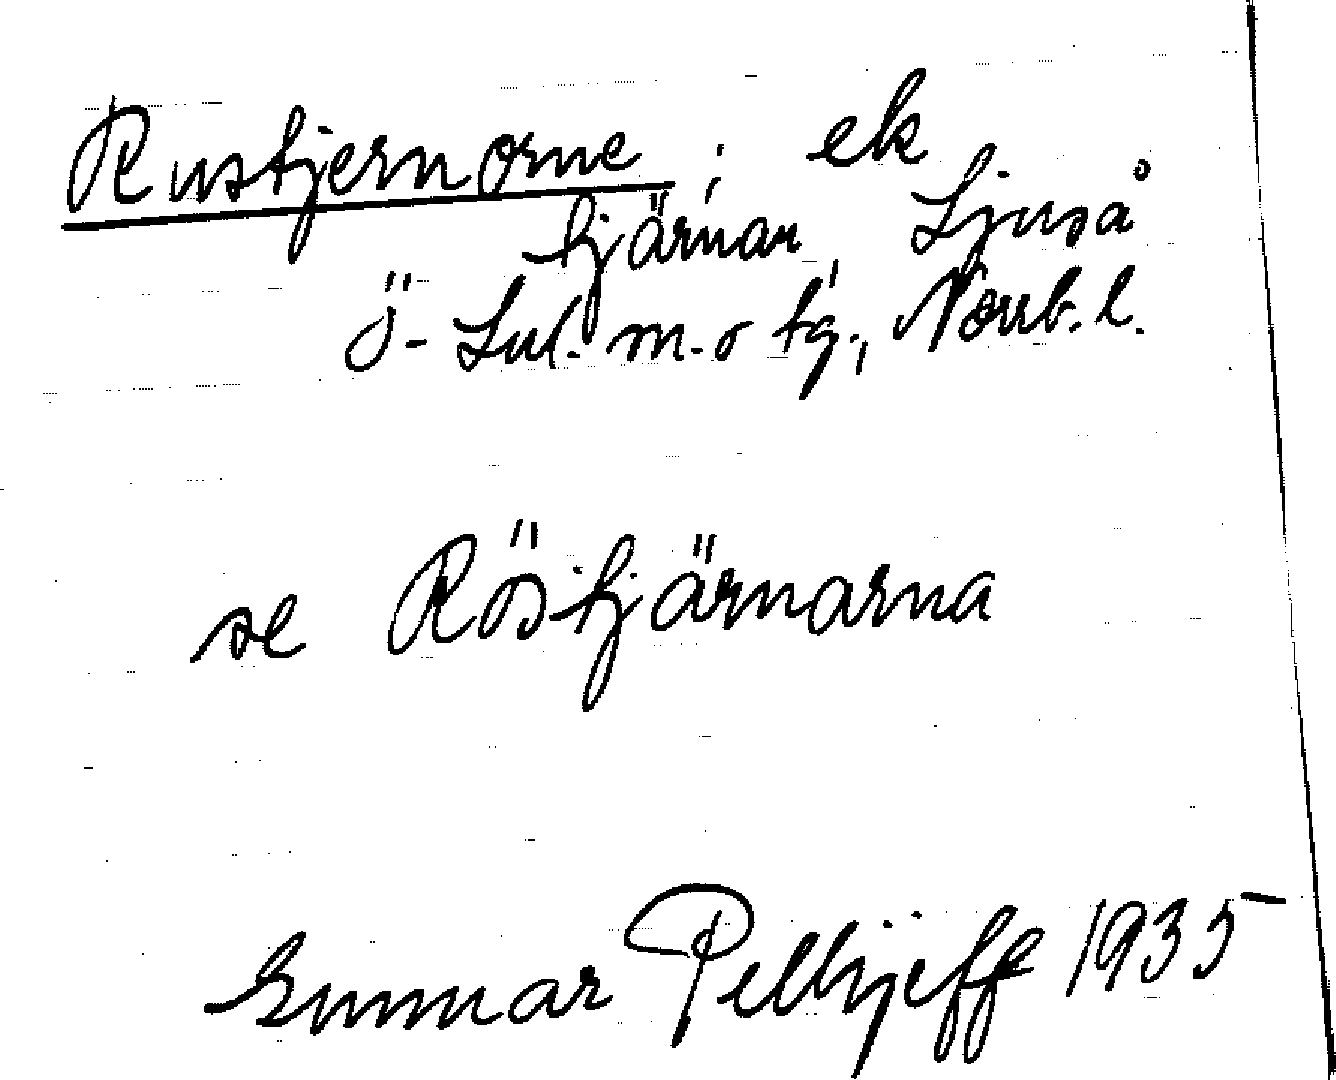 Rustjernorne ; ek
tjärnar, Ljuså
Ö-Lul. m. o tg., Norrb. l.
se Röstjärnarna
Gunnar Pellijeff 1935